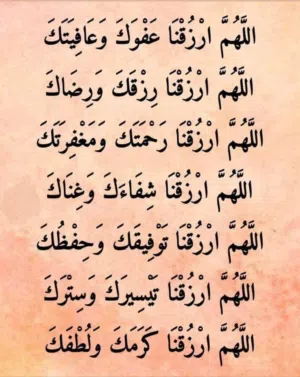 اللَّهُمَّ ارْزُقْنَا عَفْوَكَ وَعَافِيَتَكَ
اللَّهُمَّ ارْزُقْنَا رِزْقَكَ وَرِضَاكَ
اللَّهُمَّ ارْزُقْنَا رَحْمَتَكَ وَمَغْفِرَتَكَ
اللَّهُمَّ ارْزُقْنَا شِفَاءَكَ وَغِنَاكَ
اللَّهُمَّ ارْزُقْنَا تَوْفِيقَكَ وَحِفْظُكَ
اللَّهُمَّ ارْزُقْنَا تَيْسِيرَكَ وَسِتْرَكَ
اللَّهُمَّ ارْزُقْنَا كَرَمَكَ وَلُطْفَكَ